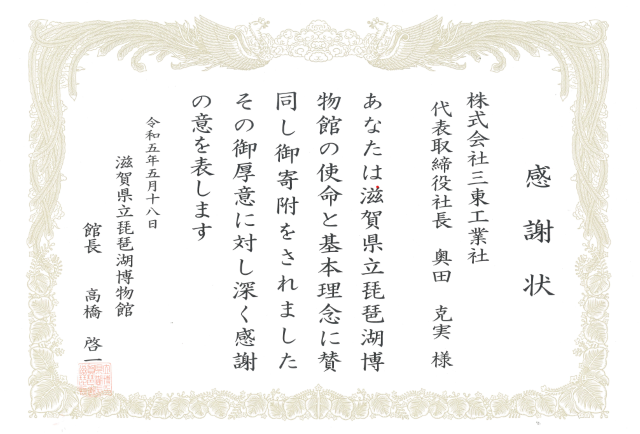 感謝状
株式会社三東工業社
代表取締役社長 奥田 克実 様
あなたは滋賀県立琵琶湖博
物館の使命と基本理念に賛
同し御寄附をされました
その御厚意に対し深く感謝
の意を表します
令和五年五月十八日
滋賀県立琵琶湖博物館
館長 高橋 啓一